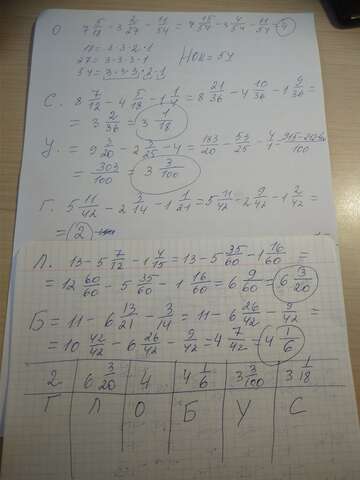 О 7 5/18 - 3 2/27 - 11/54 = 7 15/54 - 3 4/54 - 11/54 = 4
18 = 3·3·2·1
27 = 3·3·3·1 НОК = 54
54 = 3·3·3·2·1
С. 8 7/12 - 4 5/18 - 1 1/4 = 8 21/36 - 4 10/36 - 1 9/36 =
= 3 2/36 = 3 1/18
У. = 9 3/20 - 2 3/25 - 4 = 183/20 - 53/25 - 4/1 =
= 303/100 = 3 3/100
Г. 5 11/42 - 2 3/14 - 1 1/21 = 5 11/42 - 2 9/42 - 1 2/42 =
= 2
Л. 13 - 5 7/12 - 1 4/15 = 13 - 5 35/60 - 1 16/60 =
= 12 60/60 - 5 35/60 - 1 16/60 = 6 9/60 = 6 3/20
Б = 11 - 6 13/21 - 3/14 = 11 - 6 26/42 - 9/42 =
= 10 42/42 - 6 26/42 - 9/42 = 4 7/42 = 4 1/6
2 6 3/20 4 4 1/6 3 3/100 3 1/18
Г Л О Б У С